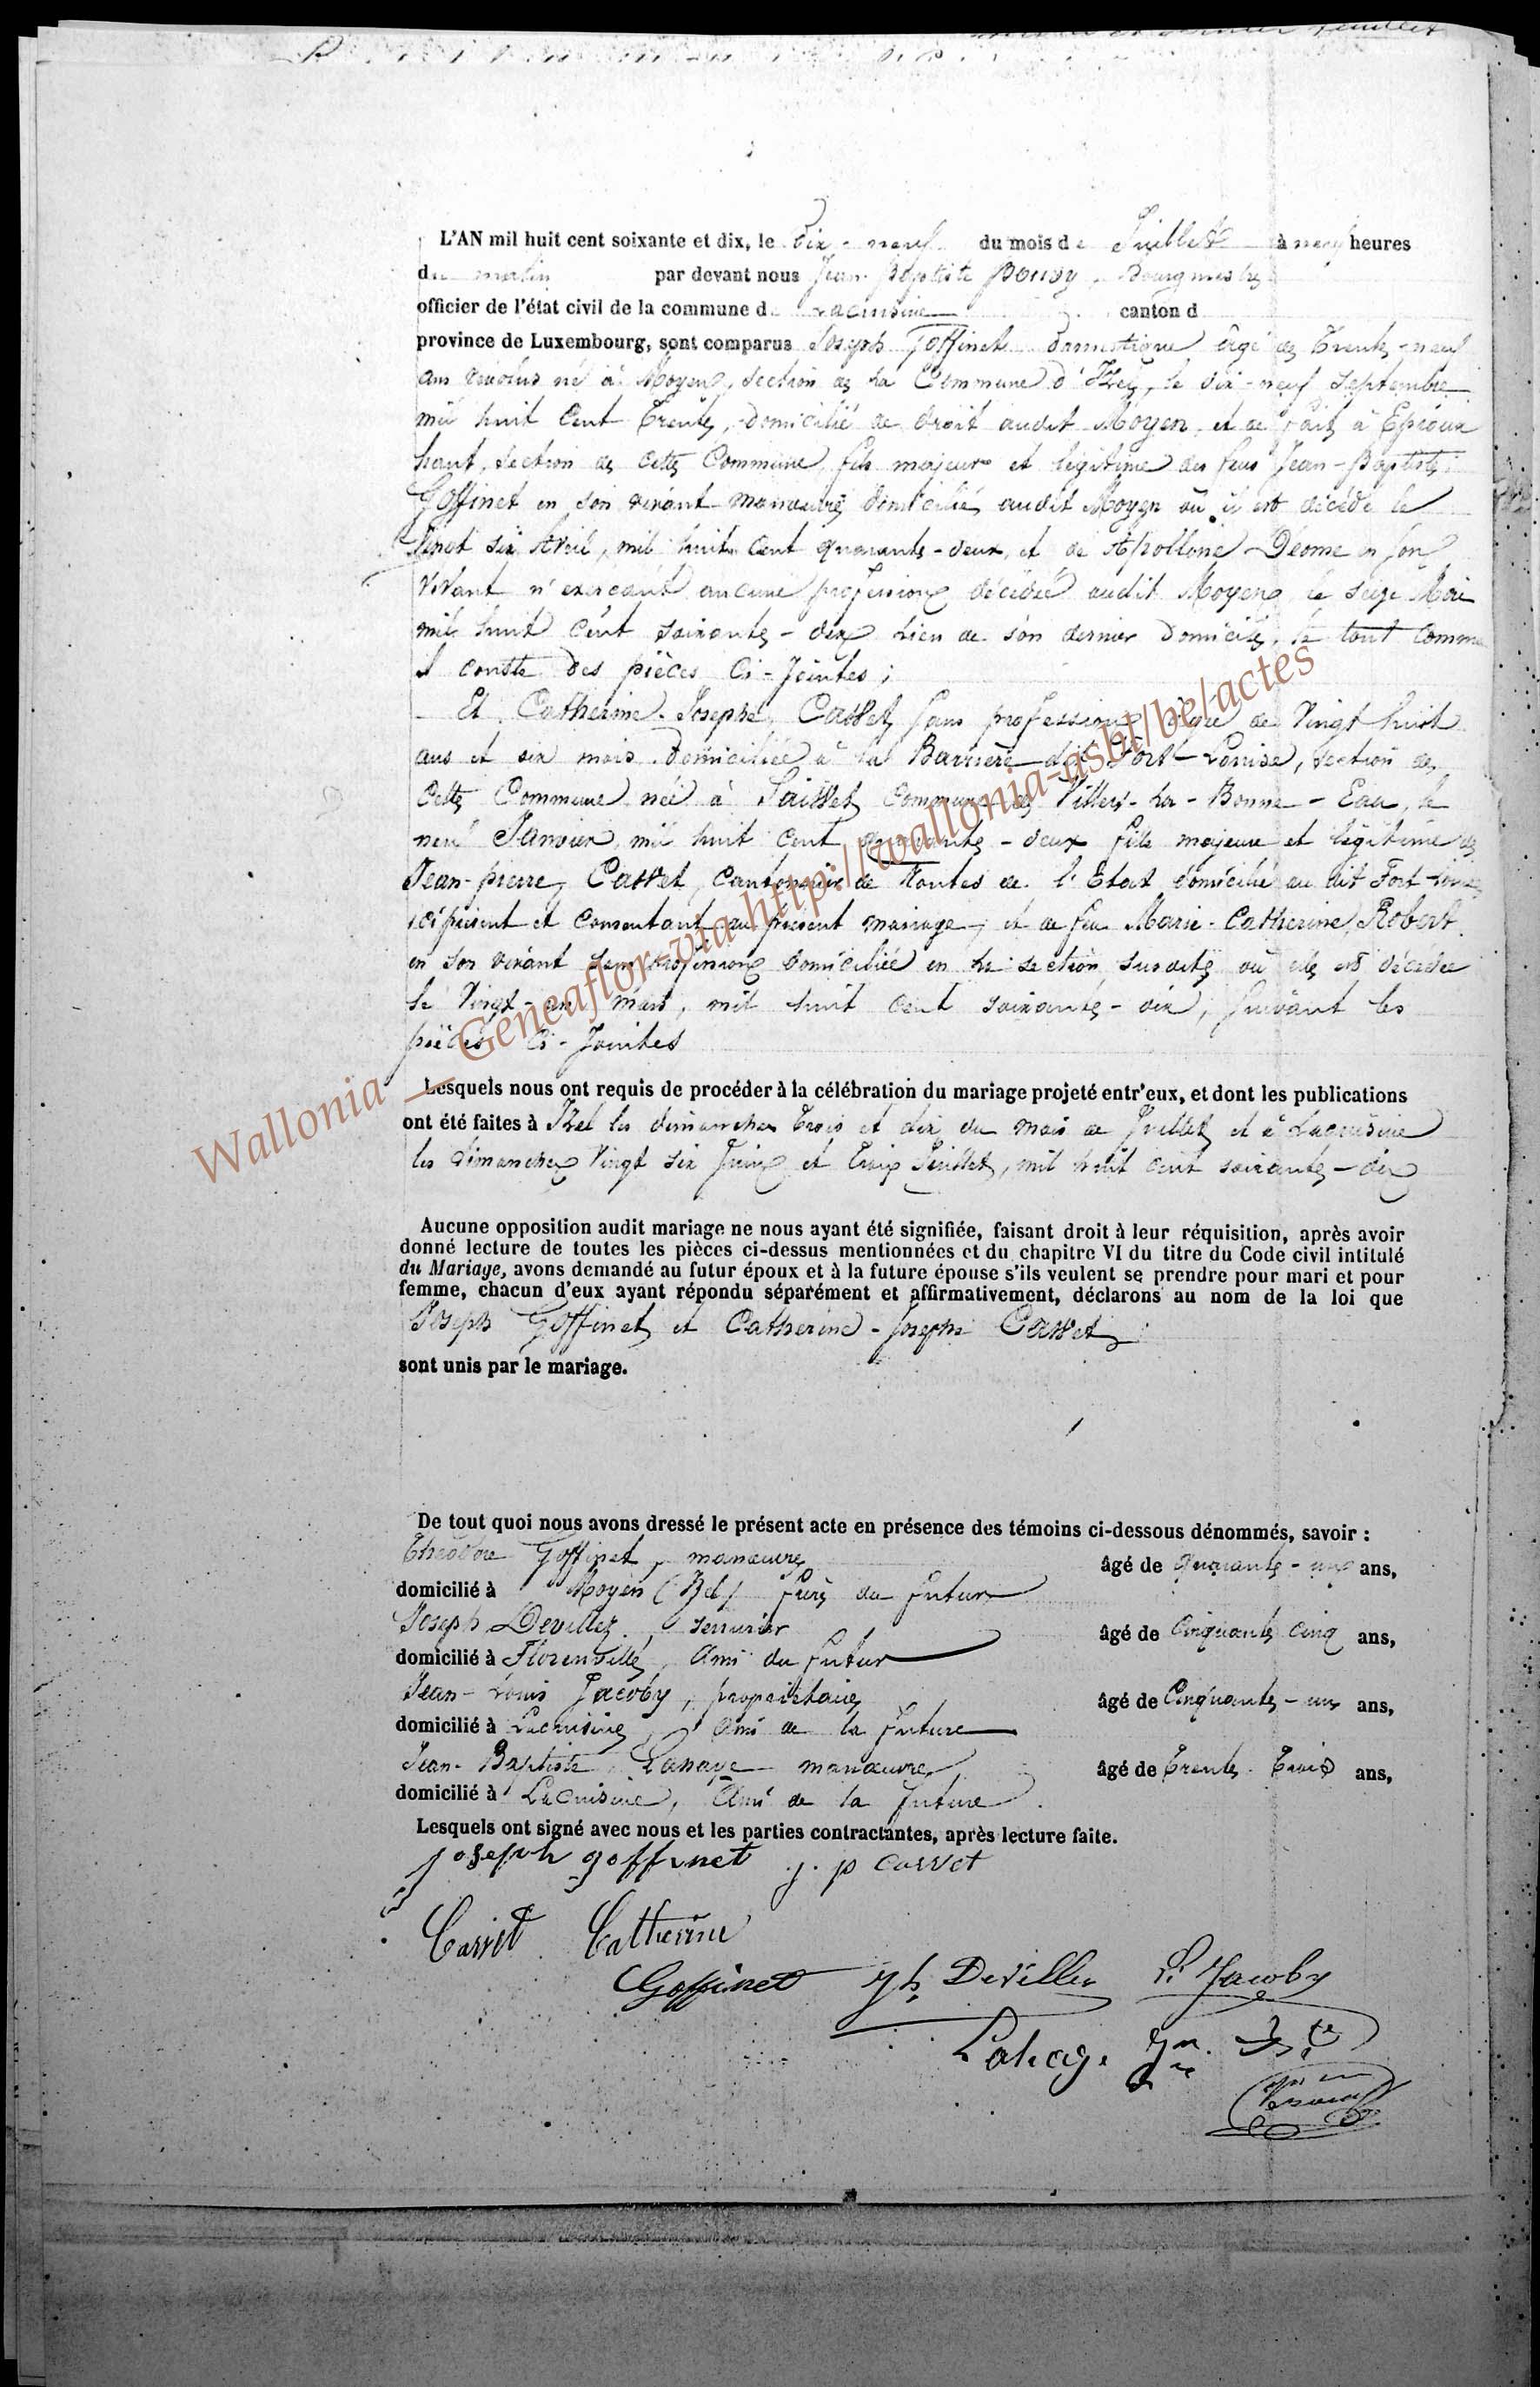 L'AN mil huit cent soixante et dix, le Dix-neuf du mois de Juillet à neuf heures
du matin par devant nous Jean-Baptiste Bourgmestre
officier de l'état civil de la commune de Lacuisine canton d
province de Luxembourg, sont comparus Joseph Goffinet Domestique âgé de Trente-neuf
ans révolus né à Moyen, section de la Commune d'Izel, le dix-neuf septembre
mil huit Cent Trente, Domicilié de Droit audit Moyen et de fait à Epioux
haut, section de cette Commune fils majeur et légitime des feus Jean-Baptiste
Goffinet en son vivant manœuvre domicilié audit Moyen où il est décédé le
vingt six Avril, mil huit Cent quarante-deux, et de Apolline Déome en son
vivant n'exerçant aucune profession décédée audit Moyen le seize Mai
mil huit cent soixante-dix lieu de son dernier Domicile, le tout comme
il conste des pièces Ci-Jointes ;
Et Catherine-Josephe Casset sans profession âgée de Vingt huit
ans et six mois Domiciliée à la Barrière dit Fort-Louise, section de
Cette Commune née à Commune de Villers-la-Bonne-Eau, le
neuf Janvier mil huit cent quarante-deux fille majeure et légitime de
Jean-pierre Casset, Cantonnier de Routes de l'Etat domicilié au dit Fort Louise
ici présent et consentant au présent mariage, et de feu Marie-Catherine Robert
en son vivant sans profession domiciliée en la section susdite où elle est décédée
le Vingt-un mars, mil huit cent soixante-dix, suivant les
pièces Ci-Jointes
Lesquels nous ont requis de procéder à la célébration du mariage projeté entr'eux, et dont les publications
ont été faites à Izel les dimanches trois et dix du mois de Juillet et à Lacuisine
les dimanches Vingt six Juin et trois Juillet, mil huit cent soixante-dix
Aucune opposition audit mariage ne nous ayant été signifiée, faisant droit à leur réquisition, après avoir
donné lecture de toutes les pièces ci-dessus mentionnées et du chapitre VI du titre du Code civil intitulé
du Mariage, avons demandé au futur époux et à la future épouse s'ils veulent se prendre pour mari et pour
femme, chacun d'eux ayant répondu séparément et affirmativement, déclarons au nom de la loi que
Joseph Goffinet et Catherine-Josephe Casset
sont unis par le mariage.
De tout quoi nous avons dressé le présent acte en présence des témoins ci-dessous dénommés, savoir :
Théodore Goffinet, manœuvre âgé de quarante-un ans,
domicilié à Moyen (Izel) frère du futur
Joseph Devillez, serrurier âgé de Cinquante Cinq ans,
domicilié à Florenville, Ami du futur
Jean-Louis Jacoby, propriétaire âgé de Cinquante-un ans,
domicilié à Lacuisine, Ami de la future
Jean-Baptiste Lahaye manœuvre, âgé de Trente-Trois ans,
domicilié à Lacuisine, Ami de la future
Lesquels ont signé avec nous et les parties contractantes, après lecture faite.
joseph goffinet j. p casset
Casset Catherine
Goffinet Jh Devillez L. Jacoby
Lahaye Jn Bte
Wallonia _ Geneaflor via http://wallonia-asbl/be/actes